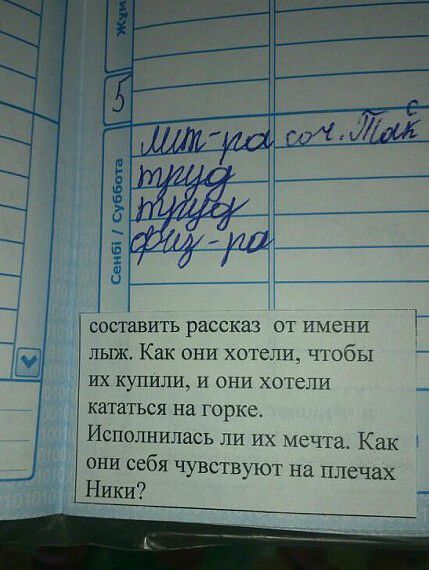 5
Сенбі / Суббота
лит-ра соч. Так с
труд
труд
физ-ра
составить рассказ от имени
лыж. Как они хотели, чтобы
их купили, и они хотели
кататься на горке.
Исполнилась ли их мечта. Как
они себя чувствуют на плечах
Ники?